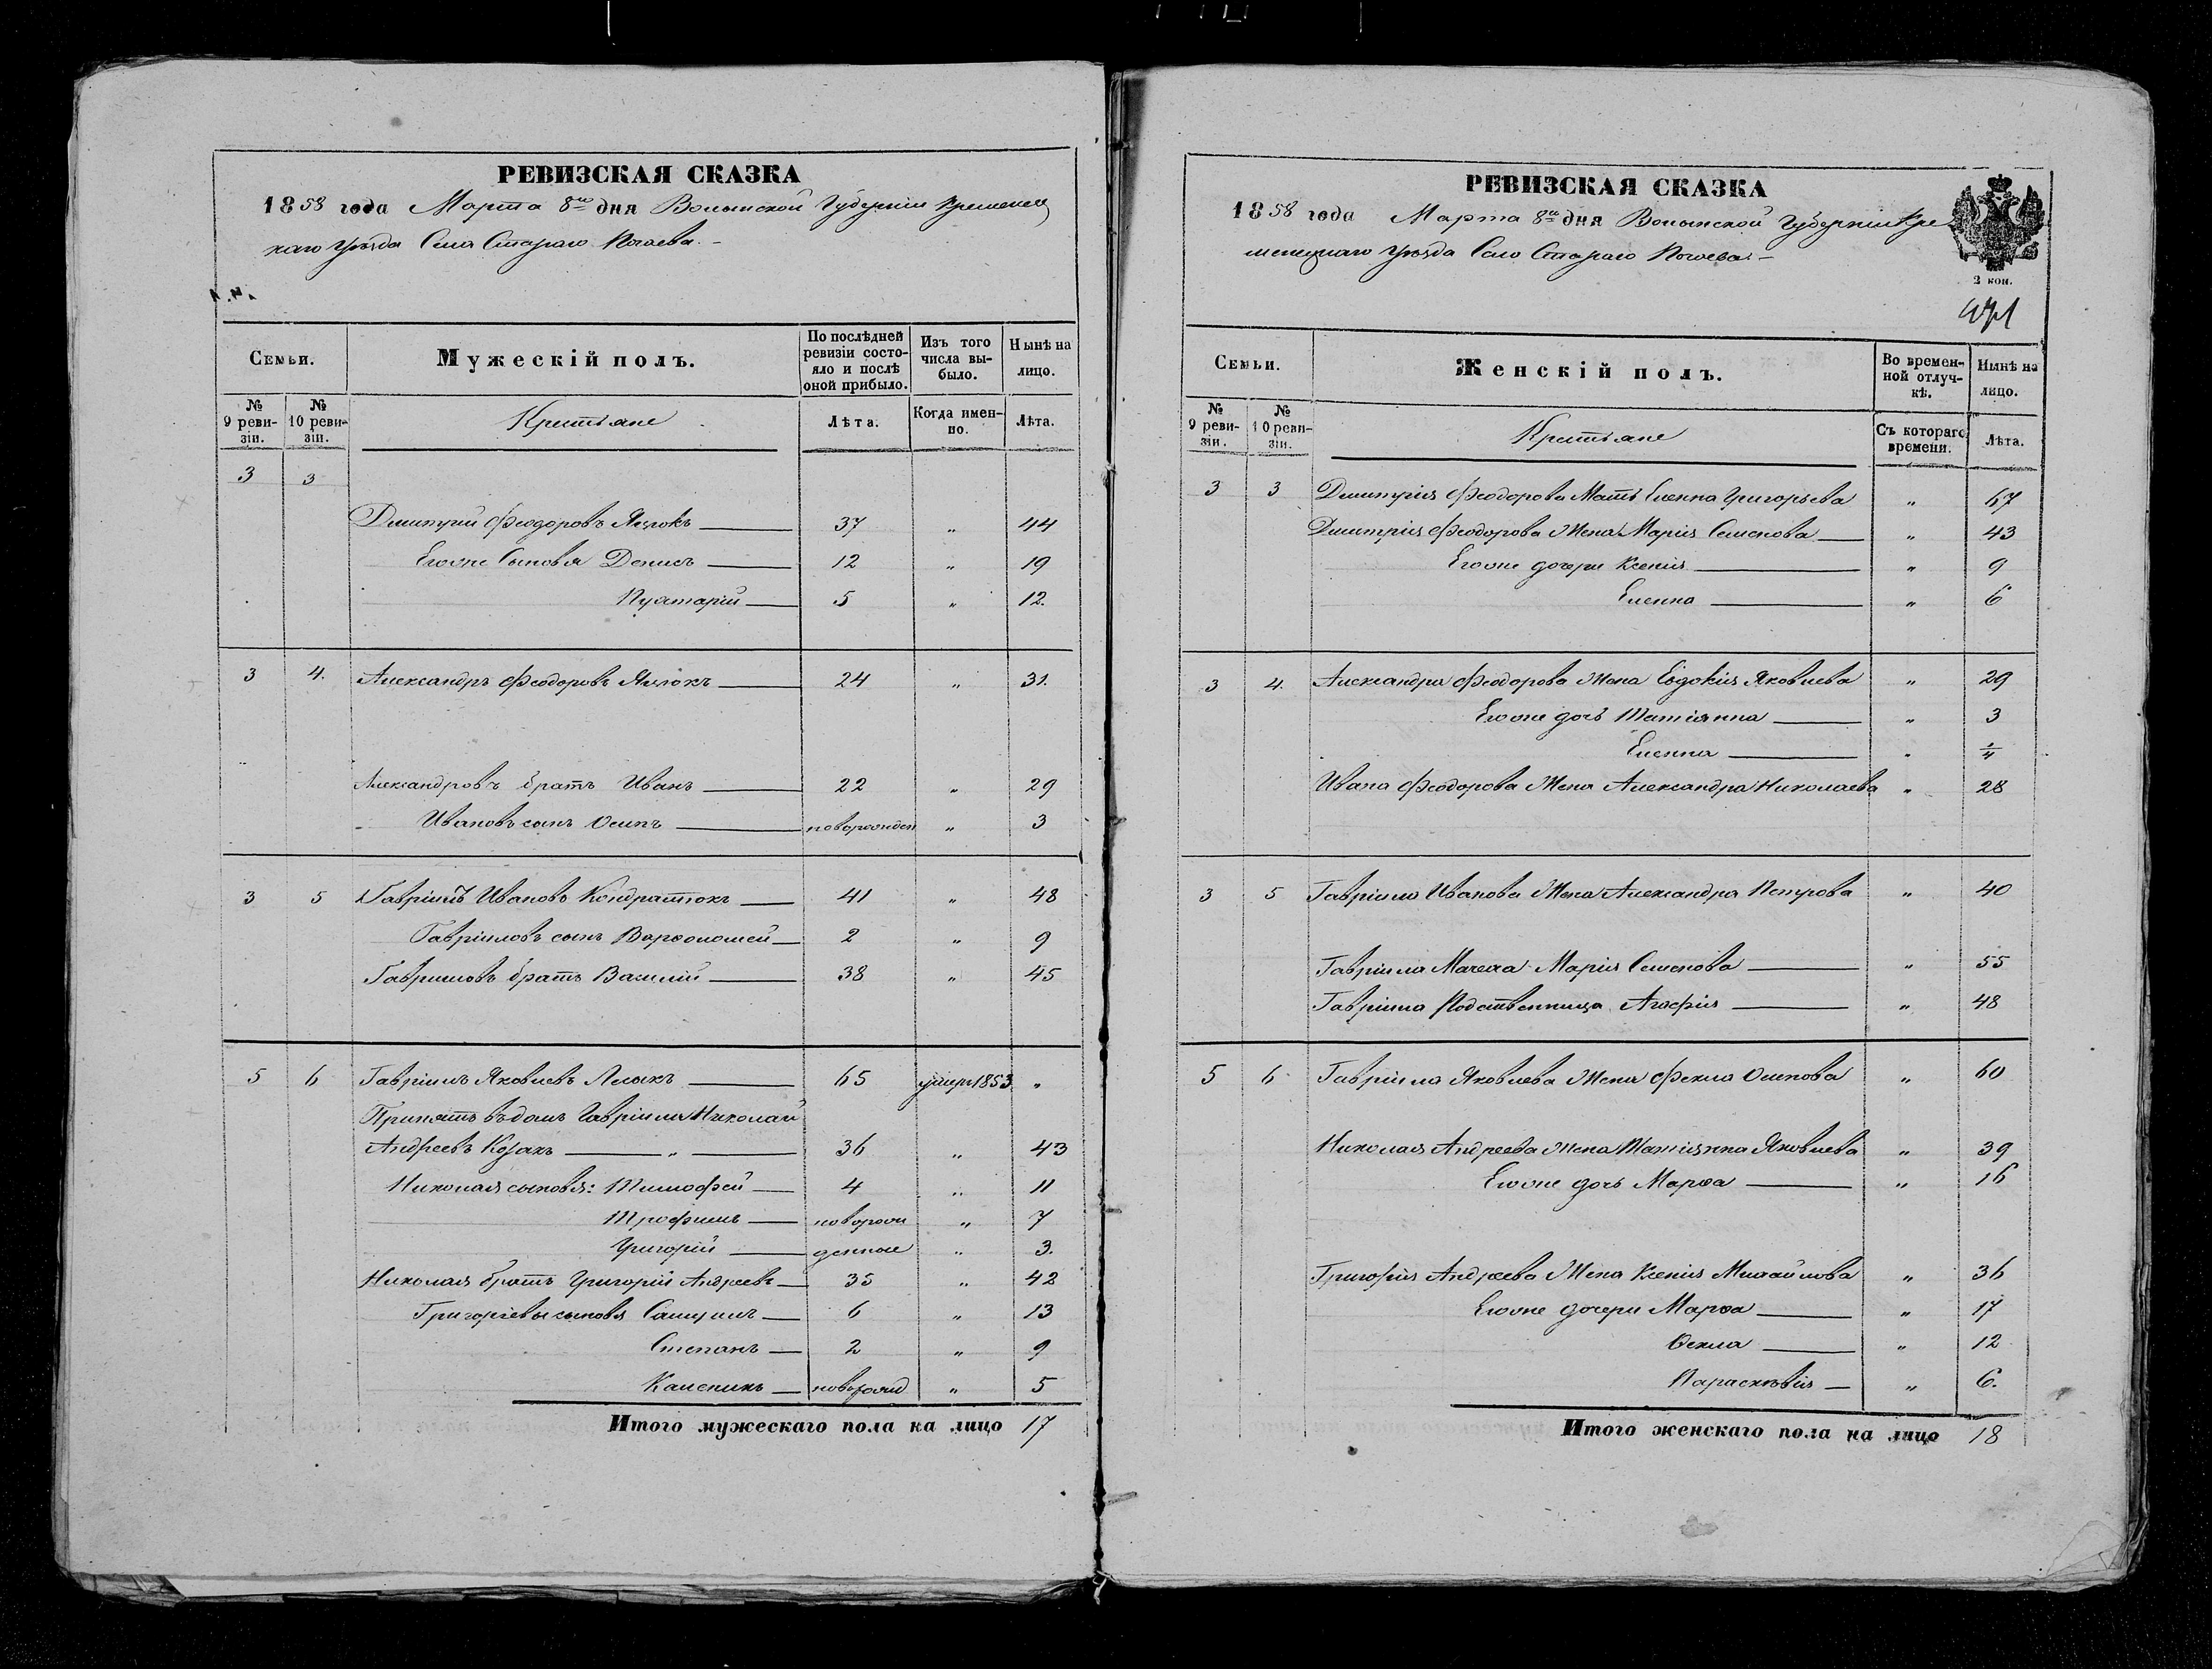 РЕВИЗСКАЯ СКАЗКА
1858 года Марта 8го дня Волынской Губерніи Кременец
каго Уѣзда Села Стараго Почаева.
Семьи.
Мужескій полъ.
По послѣдней ревизіи состояло и послѣ оной прибыло.
Изъ того числа выбыло.
Нынѣ на лицо.
№ 9 ревизіи.
№ 10 ревизіи.
Крестьяне
Лѣта.
Когда именно.
Лѣта.
3 3
Дмитрій Феодоровъ 37 " 44
Егоже Сыновья Денисъ 12 " 19
5 " 12.
3 4. Александръ Феодоровъ 24 " 31.
Александровъ братъ Иванъ 22 " 29
Ивановъ сынъ Осипъ новорожден " 3
3 5 Гавріилъ Ивановъ Кондратюкъ 41 " 48
Гавріиловъ сынъ Варѳоломей 2 " 9
Гавріиловъ братъ Василій 38 " 45
5 6 Гавріилъ Яковлевъ 65 умеръ 1853 "
Принятъ въ домъ Гавріила Николай
Андреевъ Козакъ " 36 " 43
Николая сыновья: Тимофей 4 " 11
Трофимъ новорож " 7
Григорій денные " 3.
Николая братъ Григорій Андреевъ 35 " 42
Григоріевы сыновья Самуилъ 6 " 13
Степанъ 2 " 9
Каленикъ новорожд " 5
Итого мужескаго пола на лицо 17
РЕВИЗСКАЯ СКАЗКА
1858 года Марта 8го дня Волынской Губерніи Кре
менецкаго Уѣзда Село Стараго Почаева.
2 коп.
Семьи.
Женскій полъ.
Во временной отлучкѣ.
Нынѣ на лицо.
№ 9 ревизіи.
№ 10 ревизіи.
Крестьяне
Съ котораго времени.
Лѣта.
3 3 Дмитрія Феодорова Мать Еленна Григорьева " 67
Дмитрія Феодорова Жена Марія Семенова " 43
Егоже дочери Ксенія " 9
Еленна " 6
3 4. Александра Феодорова Жена Евдокія Яковлева " 29
Егоже дочь Татіянна " 3
Еленна " 1/4
Ивана Феодорова Жена Александра Николаева " 28
3 5 Гавріила Иванова Жена Александра Петрова " 40
Гавріила Мачеха Марія Семенова " 55
Гавріила Родственница Агафія " 48
5 6 Гавріила Яковлева Жена Фекла Осипова " 60
Николая Андреева Жена Татіянна Яковлева " 39
Егоже дочь Марѳа " 16
Григорія Андреева Жена Ксенія Михайлова " 36
Егоже дочери Марѳа " 17
Ѳекла " 12
Параскѣвія " 6.
Итого женскаго пола на лицо 18